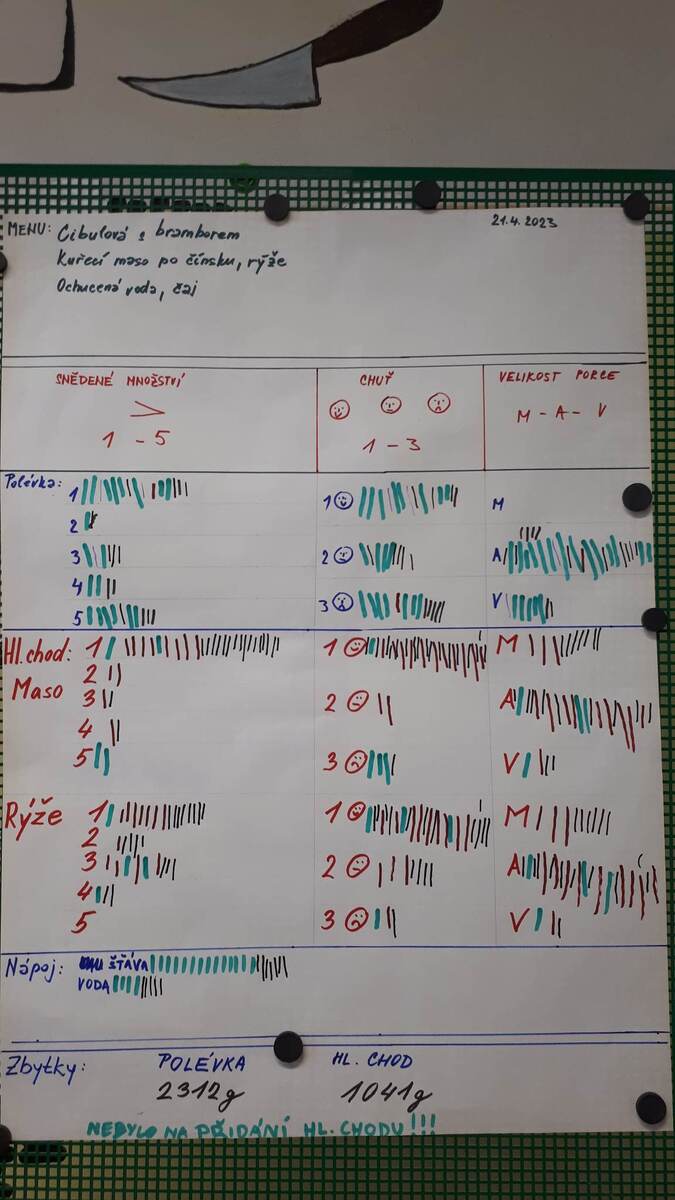 MENU: Cibulová s bramborem
21.4.2023
Kuřecí maso po čínsku, rýže
Ochucená voda, čaj
SNĚDENÉ MNOŽSTVÍ
>
1 - 5
CHUŤ
1 - 3
VELIKOST PORCE
M - A - V
Polévka:
1
2
3
4
5
1
2
3
M
A
V
Hl. chod:
Maso
1
2
3
4
5
1
2
3
M
A
V
Rýže
1
2
3
4
5
1
2
3
M
A
V
Nápoj:
ŠŤÁVA
VODA
Zbytky:
POLÉVKA
HL. CHOD
2312g
1041g
NEBYLO NA PŘIDÁNÍ HL. CHODU!!!